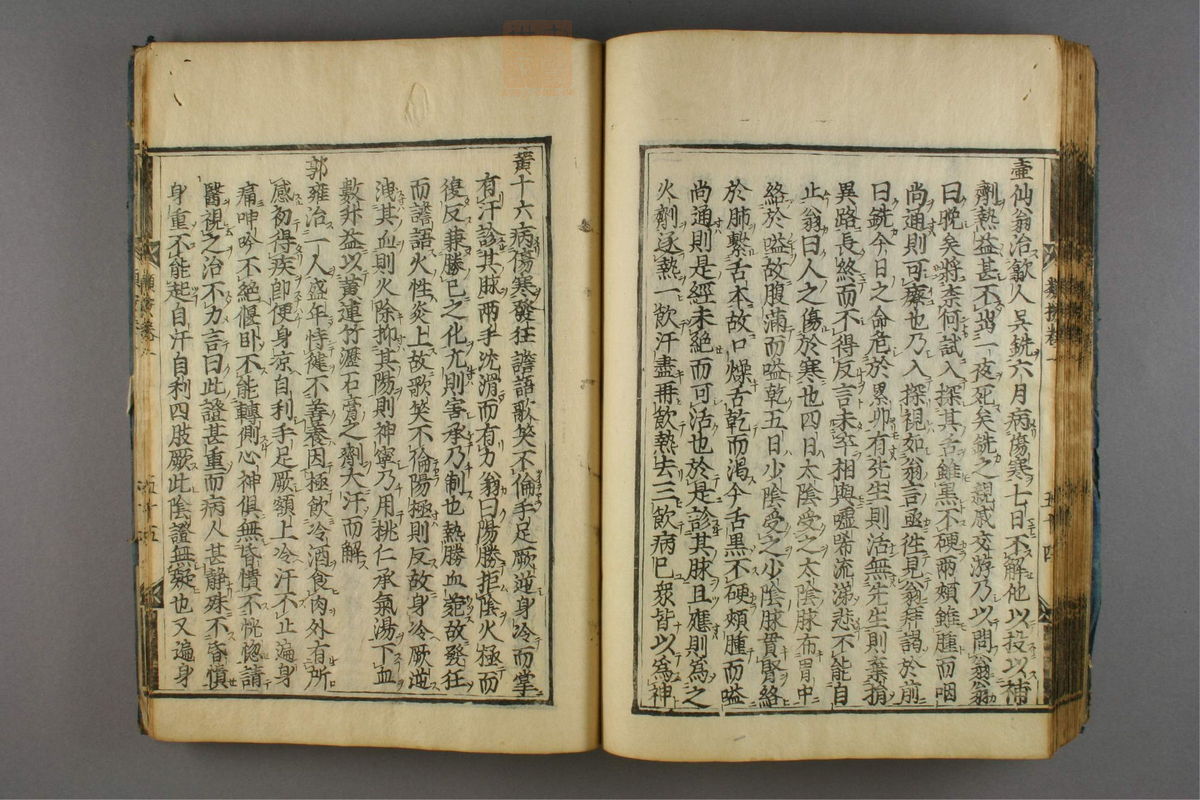 壷仙翁治歙人吳銑六月病傷寒七日不解他以投以補
劑熱益甚不出一夜死矣銑之親戚交游乃以問翁翁
曰晚矣將柰何試入探其舌雖黒不硬兩頰雖腫而咽
尚通則可療也乃入探視如翁言亟徃見翁拜謁於前
曰銑今日之命危於累卵有先生則活無先生則棄捐
異路長終而不得反言未卒相與噓唏流涕悲不能自
止翁曰人之傷於寒也四日太陰受之太陰脉布胃中
絡於嗌故腹滿而嗌乾五日少陰受之少陰脉貫腎絡
於肺繫舌本故口燥舌乾而渴今舌黒不硬頰腫而嗌
尚通則是經未絶而可活也於是診其脉且應則爲之
火劑逐熱一飲汗盡再飲熱去三飲病已衆皆以爲神
黄十六病傷寒發狂譫語歌笑不倫手足厥逆身冷而掌
有汗診其脉两手沈滑而有力翁曰陽勝拒陰火極而
復反兼勝己之化亢則害承乃制也熱勝血菀故發狂
而譫語火性炎上故歌笑不倫陽極則反故身冷厥逆
洩其血則火除抑其陽則神寧乃用桃仁承氣湯下血
數升益以黄連竹瀝石膏之劑大汗而解
郭雍治一人盛年恃健不善養因極飲冷酒食肉外有所
感初得疾即便身凉自利手足厥額上冷汗不止遍身
痛呻吟不絶偃卧不能轉側心神俱無昏憒不恍惚請
醫視之治不力言曰此證甚重而病人甚静殊不昏憒
身重不能起自汗自利四肢厥此陰證無疑也又遍身